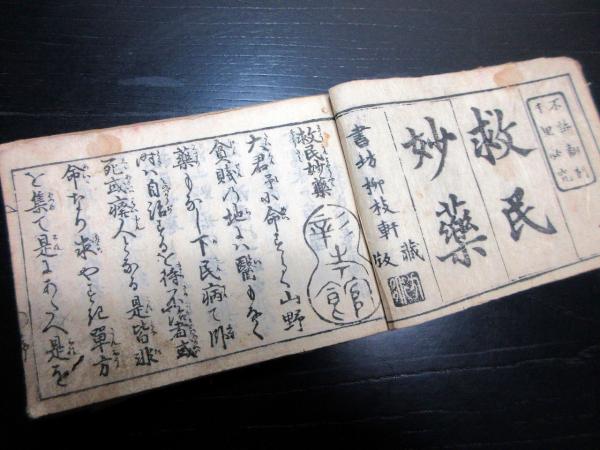 不許翻刻
千里必究
救民
妙藥
書坊 柳枝軒藏版
救民妙藥
彰考館
大君予に命して山野
貧賤の地には醫もなく
藥もなし下民病て
時は自治るを待不治者或
死或癈人となる是皆非
命なり求やすき單方
を集て是をあたへ是を